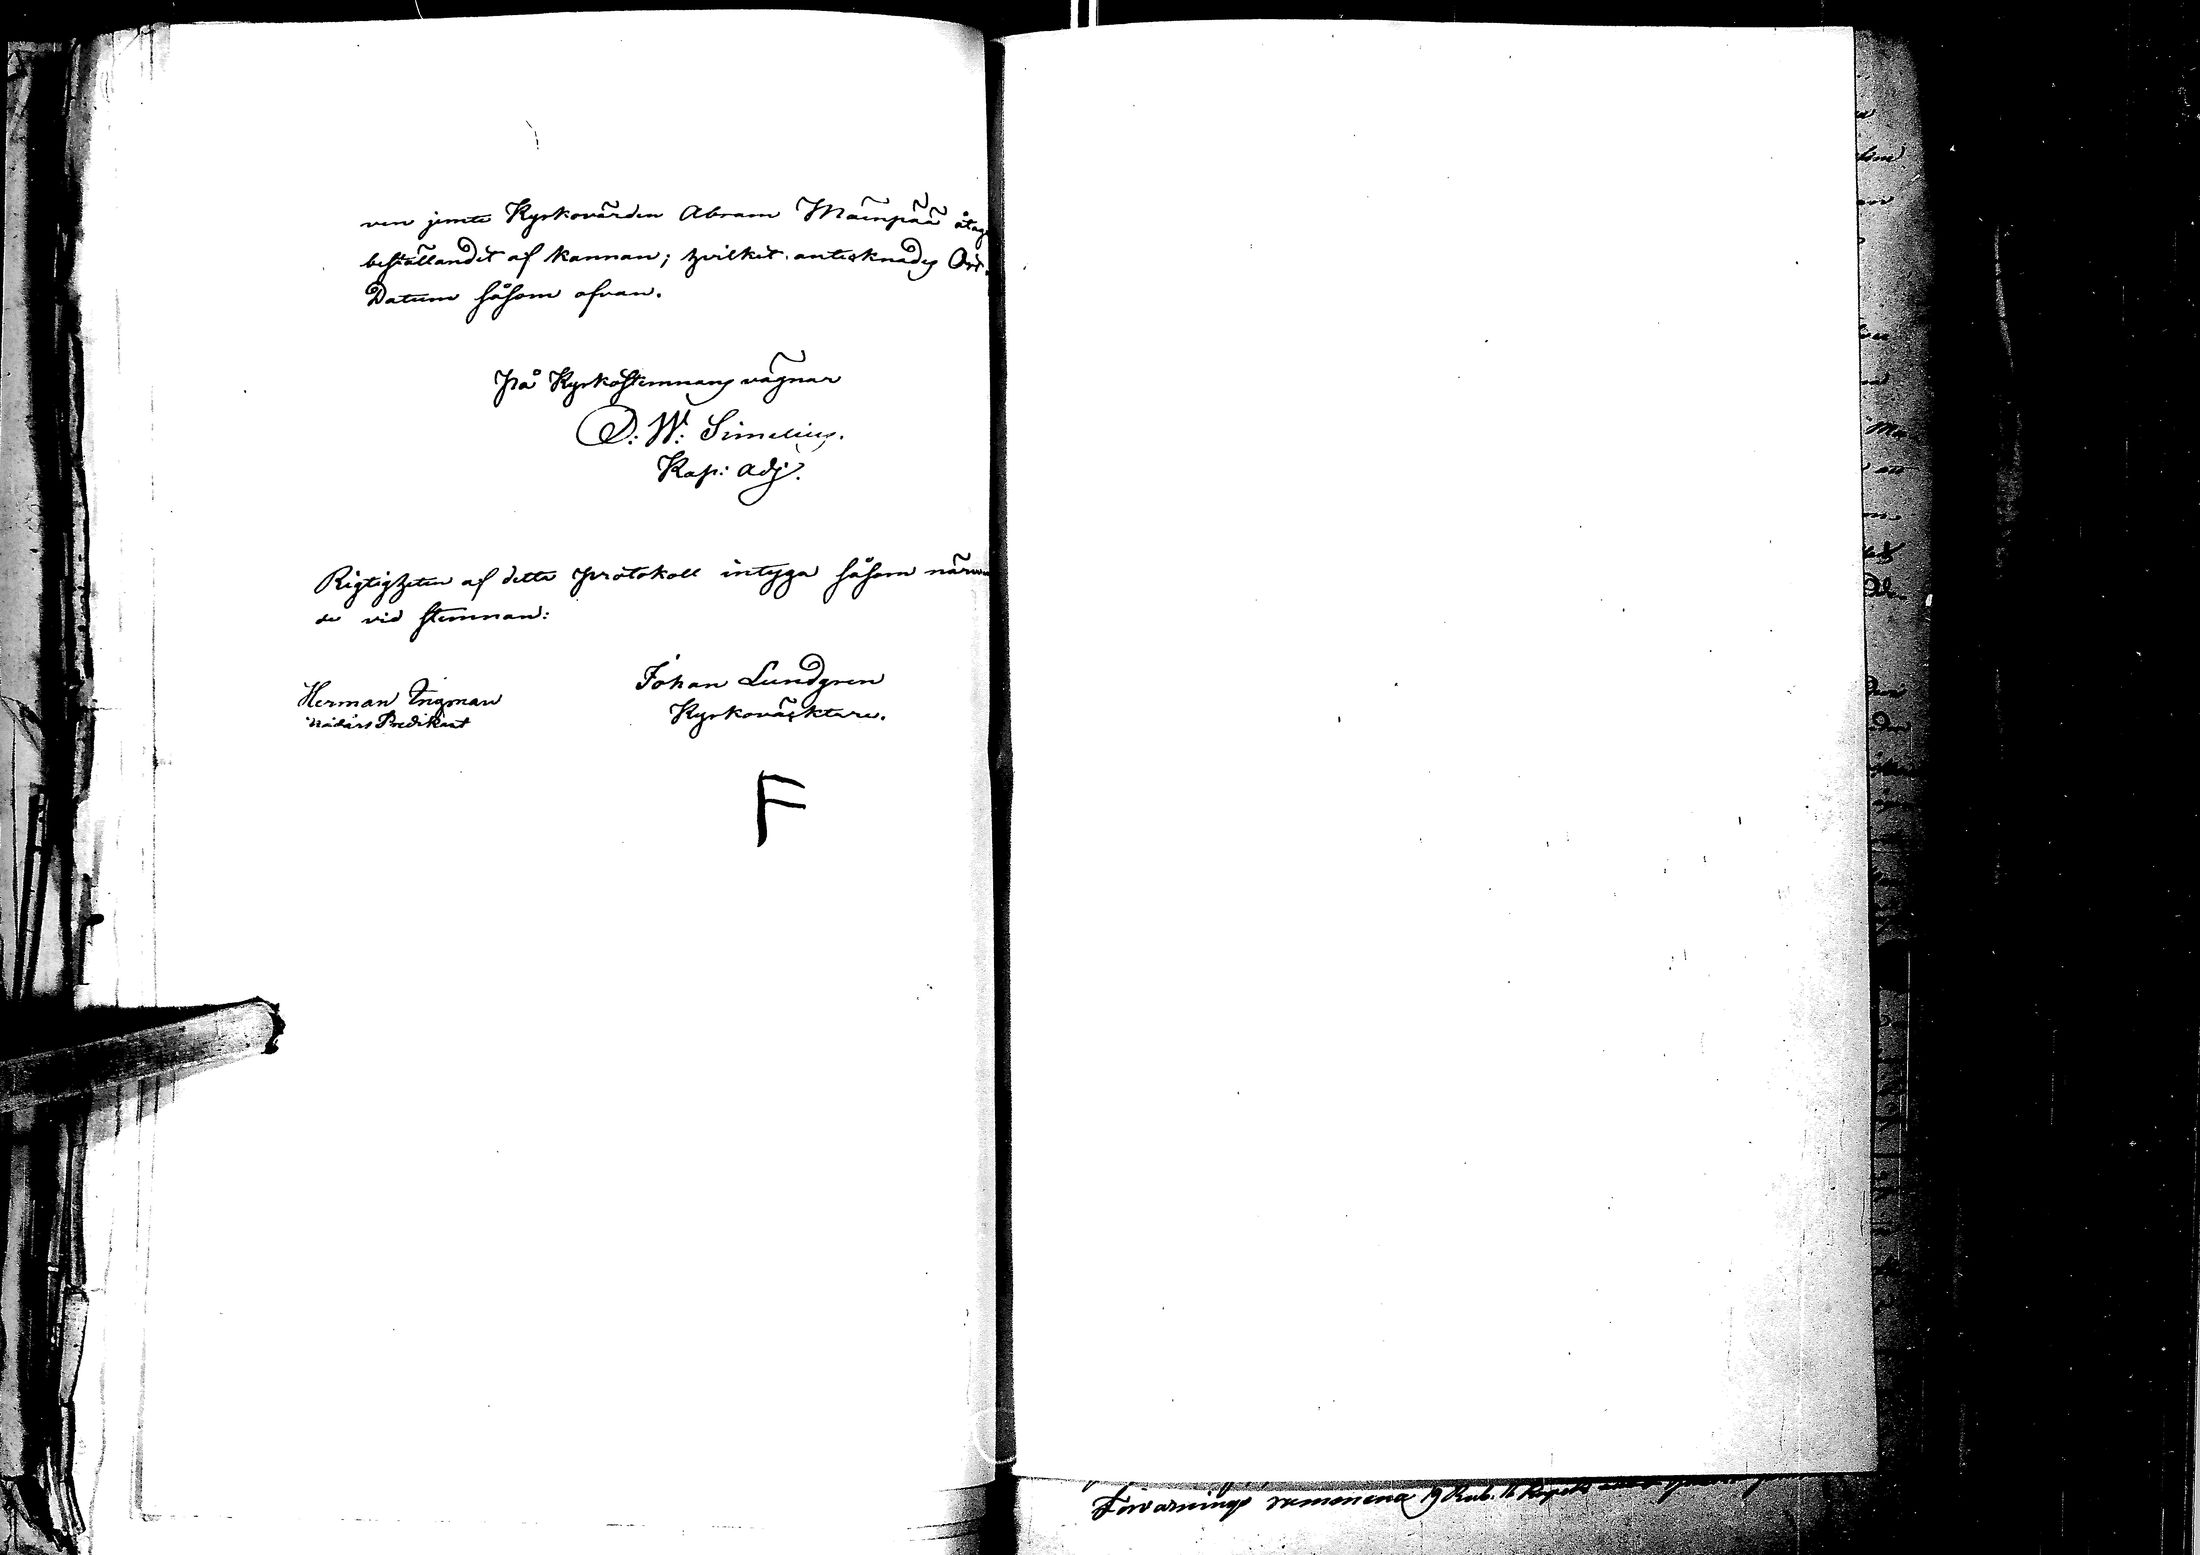 ven jemte Kyrkovärden Abram Mäenpää åtog
beställandet af kannan; hvilket antecknades Ort.
Datum såsom ofvan.
På Kyrkostemnans vägnar
D: W: Simelius.
Kap: adj:
Rigtigheten af detta protokoll intyga såsom närvaran
de vid stemnan:
Herman Ingman
Nådårs Predikant
Johan Lundgren
Kyrkoväcktare.
F
Förvarnings 19 Rub. 16 Kopek